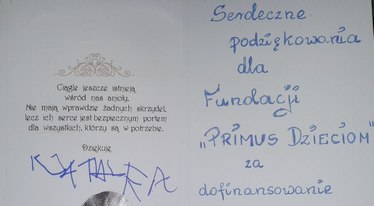 Ciągle jeszcze istnieją
wśród nas anioły.
Nie mają wprawdzie żadnych skrzydeł,
lecz ich serce jest bezpiecznym portem
dla wszystkich, którzy są w potrzebie.
Dziękuję
NATALKA
Serdeczne
podziękowania
dla
Fundacji
„PRIMUS DZIECIOM"
za
dofinansowanie